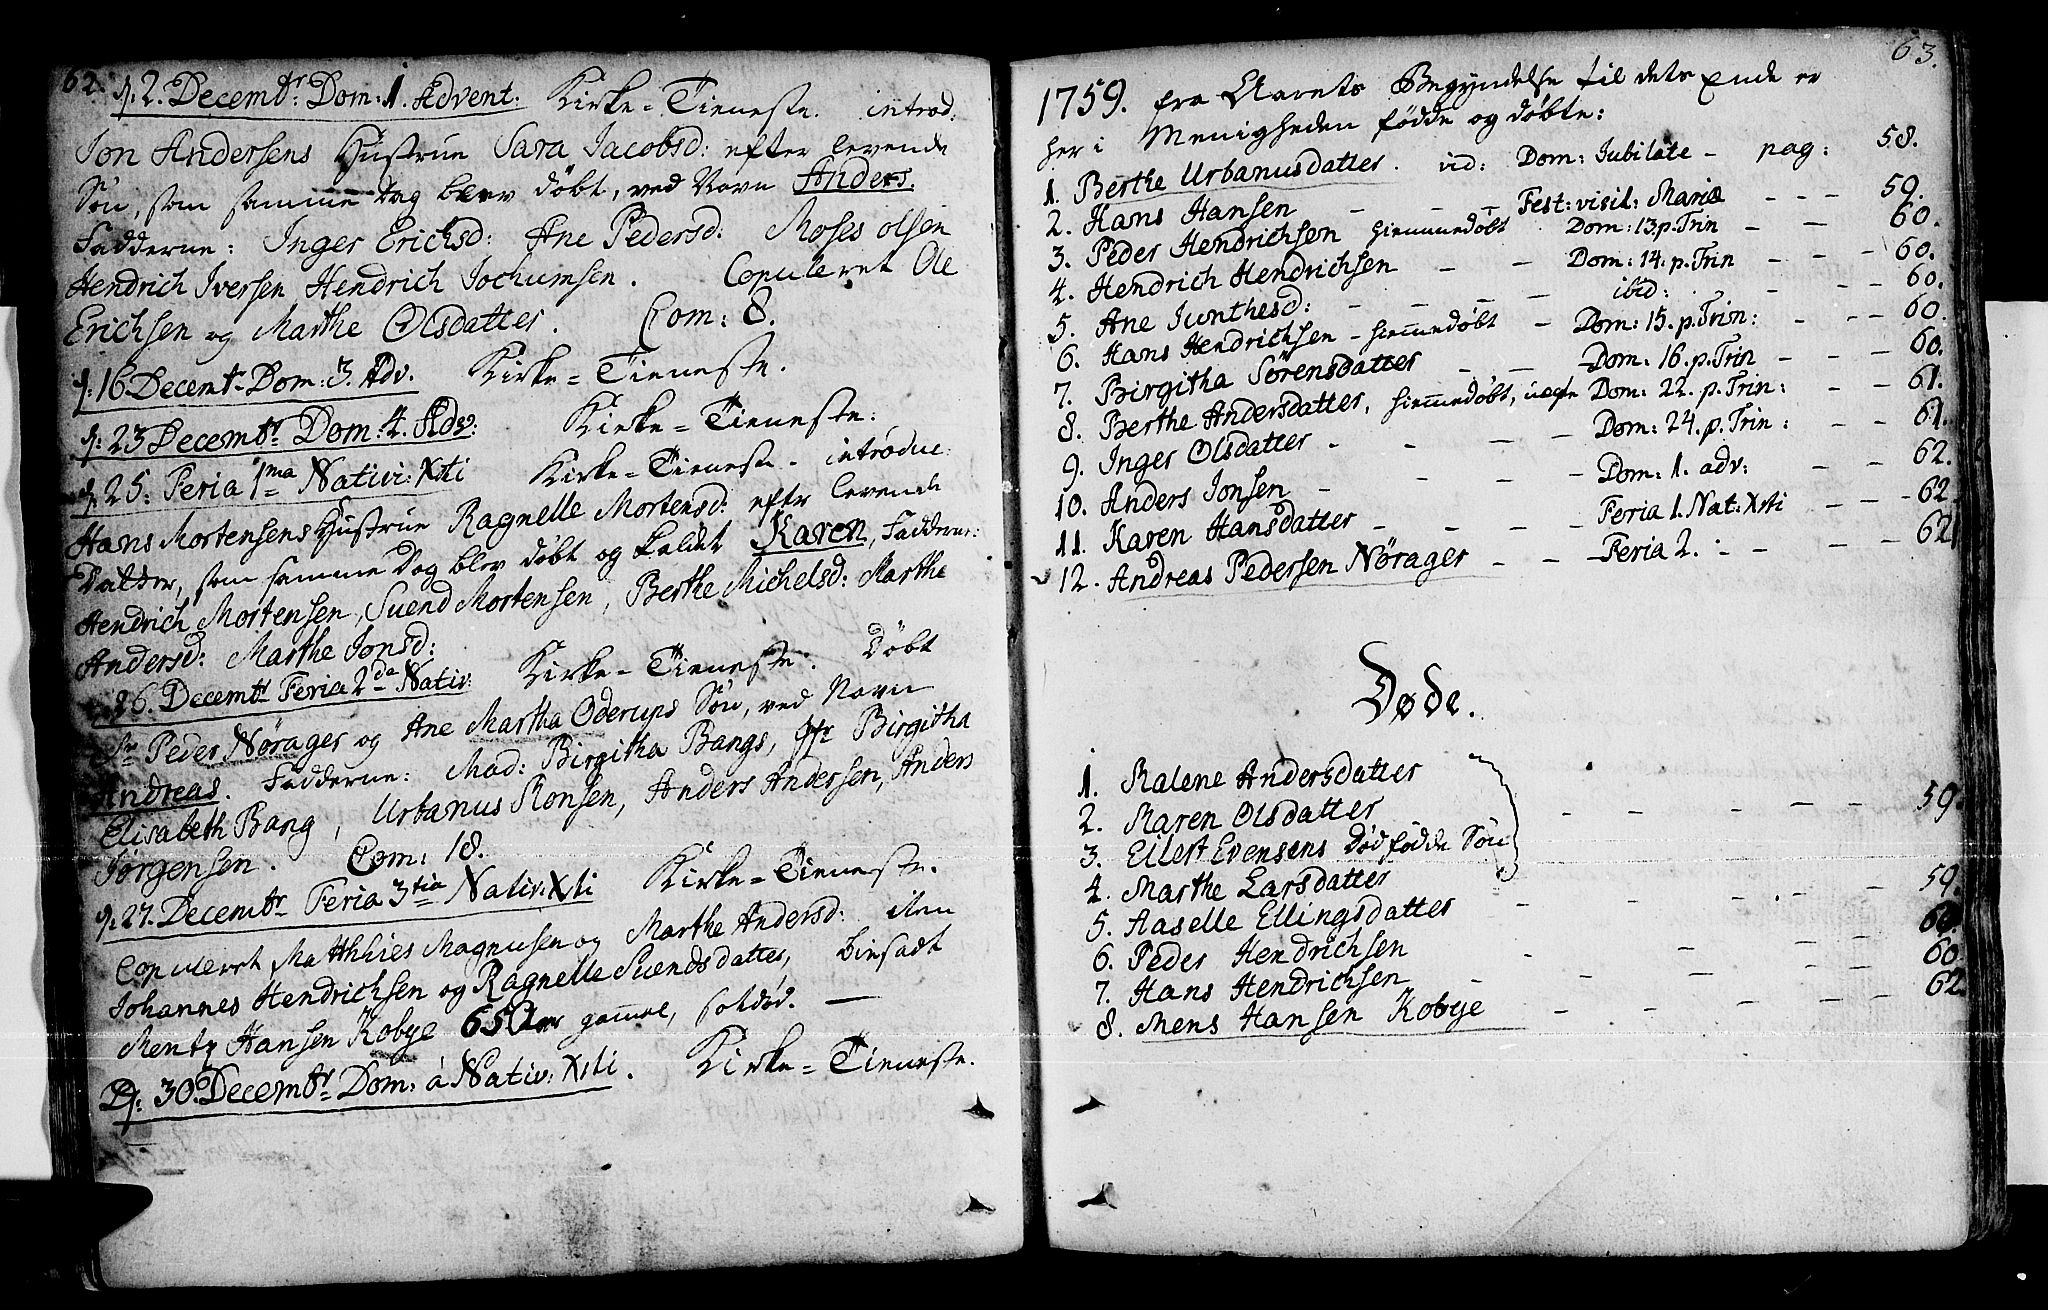 62.
d: 2. Decembr Dom: 1. Advent: Kirke-Tieneste. introd:
Jon Andersens Hustrue Sara Jacobsd: efter levende
Søn, som samme Dag blev døbt, ved Navn Anders.
Fadderne: Inger Erichsd: Ane Pedersd: Moses Olsen
Hendrich Iversen Hendrich Jochumsen. Copuleret Ole
Erichsen og Marthe Olsdatter. Com: 8.
d: 16 Decembr Dom: 3. Adv. Kirke-Tieneste.
d: 23 Decembr Dom: 4. Adv: Kirke-Tieneste:
d: 25: Feria 1ma Nativi: Xsti Kirke-Tieneste. introduc:
Hans Mortensens Hustrue Ragnelle Mortensd: efter levende
Datter, som samme Dag blev døbt og kaldet Karen, Fadderne:
Hendrich Mortensen, Suend Mortensen, Berthe Michelsd: Marthe
Andersd: Marthe Jonsd:
d. 26. Decembr Feria 2da Nativ: Kirke-Tieneste: Døbt
Sr Peder Nørager og Ane Martha Oderups Søn, ved Navn
Andreas. Fadderne: Mad: Birgitha Bangs, Jfr Birgitha
Elisabeth Bang, Urbanus Monsen, Anders Andersen, Anders
Jørgensen. Com: 18.
d: 27. Decembr Feria 3tia Nativ: Xsti Kirke-Tieneste.
Copuleret Matthies Magnusen og Marthe Andersd: item
Johannes Hendrichsen og Ragnelle Suendsdatter,
Mentz Hansen Kobye 65 Aar gammel,
D: 30. Decembr Dom: á Nativ: Xsti. Kirke-Tieneste.
63.
1759. fra Aarets Begyndelse til dets Ende er
her i Menigheden fødde og døbte:
1. Berthe Urbanusdatter. vid: Dom: Jubilate - pag: 58.
2. Hans Hansen - - - Fest: visit: Mariæ - - - 59.
3. Peder Hendrichsen hiemmedøbt Dom: 13. p. Trin - - 60.
4. Hendrich Hendrichsen - - Dom: 14: p. Trin - - - 60.
5. Ane Junthesd: - - - - ibid: - - - 60.
6. Hans Hendrichsen - hiemmedøbt - Dom: 15. p. Trin: - - - 60.
7. Birgitha Sørensdatter - - Dom: 16. p. Trin - - - 60.
8. Berthe Andersdatter, hiemmedøbt, Dom: 22. p. Trin: - - 61.
9. Inger Olsdatter - - - - Dom: 24. p. Trin: - - 61.
10. Anders Jonsen - - Dom: 1. adv: - - 62.
11. Karen Hansdatter - - - - Feria 1. Nat: Xsti - - - 62
12. Andreas Pedersen Nørager - - Feria 2. - - - - 62
Døde.
1. Malene Andersdatter
2. Maren Olsdatter - - - - - - 59.
3. Eilert Evensens Dødfødde Søn
4. Marthe Larsdatter - - 59.
5. Aaselle Ellingsdatter - - - - 60.
6. Peder Hendrichsen - - - - 60
7. Hans Hendrichsen - - - - 62.
8. Mens Hansen Kobye - - - -